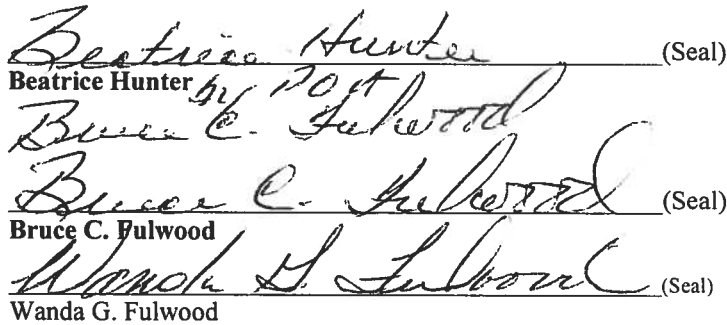 Beatrice Hunter (Seal)
Beatrice Hunter by POA
Bruce C. Fulwood
Bruce C. Fulwood (Seal)
Bruce C. Fulwood
Wanda G. Fulwood (Seal)
Wanda G. Fulwood